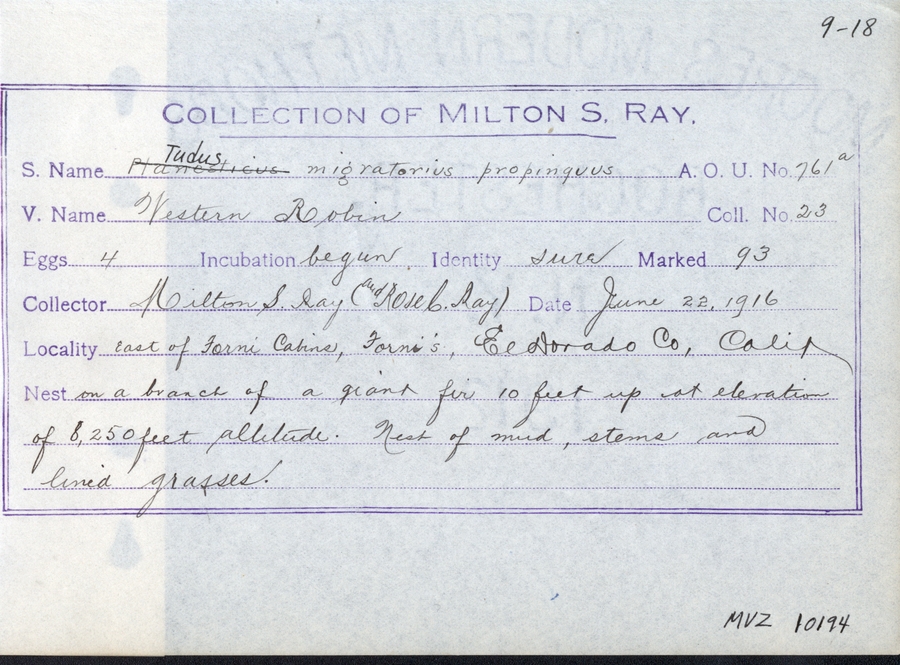 9-18
COLLECTION OF MILTON S. RAY.
Tudus
S. Name Planesticus migratorius propinquus A. O. U. No. 761a
V. Name Western Robin Coll. No. 23
Eggs 4 Incubation begun. Identity sure Marked 93
Collector Milton S. Ray (and Rose C. Ray) Date June 22, 1916
Locality east of Forni Cabins, Forni's, El Dorado Co, Calif
Nest on a branch of a giant fir 10 feet up at elevation
of 8,250 feet altitude. Nest of mud, stems and
lined grasses.
MVZ 10194